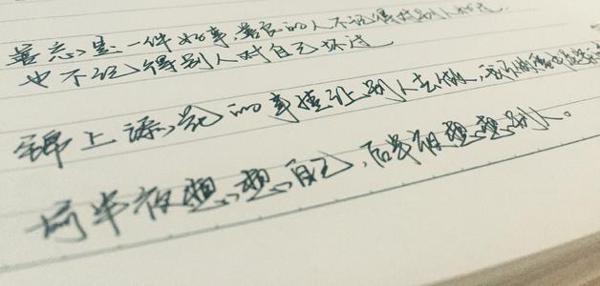 善忘是一件好事,善良的人不记得对别人好过
也不记得别人对自己坏过
锦上添花的事情让别人去做,我只做雪中送
前半夜想想自己,后半夜想想别人。